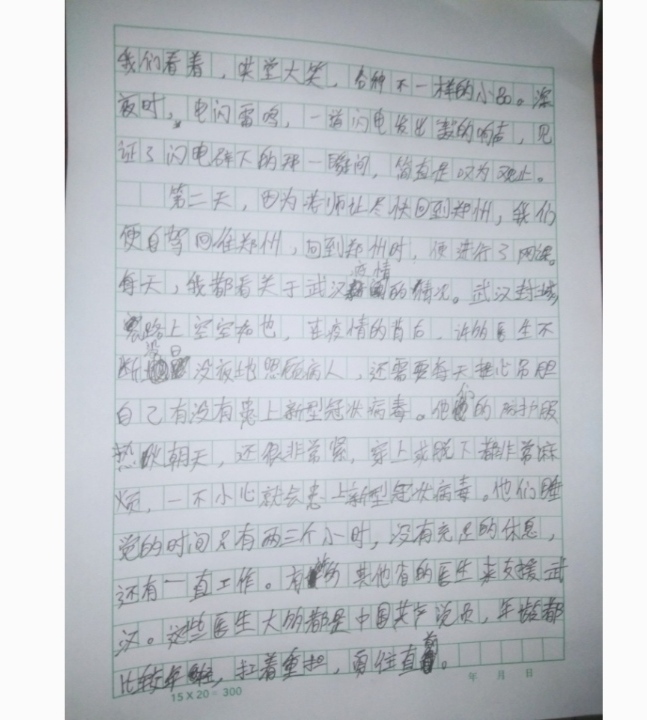 我们看着，哄堂大笑，各种不一样的小品。深
夜时，电闪雷鸣，一道闪电发出轰的响声，见
证了闪电砰下的那一瞬间，简直是叹为观止。
第二天，因为老师让尽快回到郑州，我们
便自驾回往郑州，回到郑州时，便进行了网课。
每天，我都看关于武汉疫情的情况。武汉封城
路上空空如也，在疫情的背后，许的医生不
断没日没夜地照顾病人，还需要每天提心吊胆
自己有没有患上新型冠状病毒。他们的防护服
热火朝天，还很非常紧，穿上或脱下都非常麻
烦，一不小心就会患上新型冠状病毒。他们睡
觉的时间只有两三个小时，没有充足的休息，
还有一直工作。有的其他省的医生来支援武
汉。这些医生大的都是中国共产党员，年龄都
比较年轻，扛着重担，勇往直前。
15×20=300
年 月 日